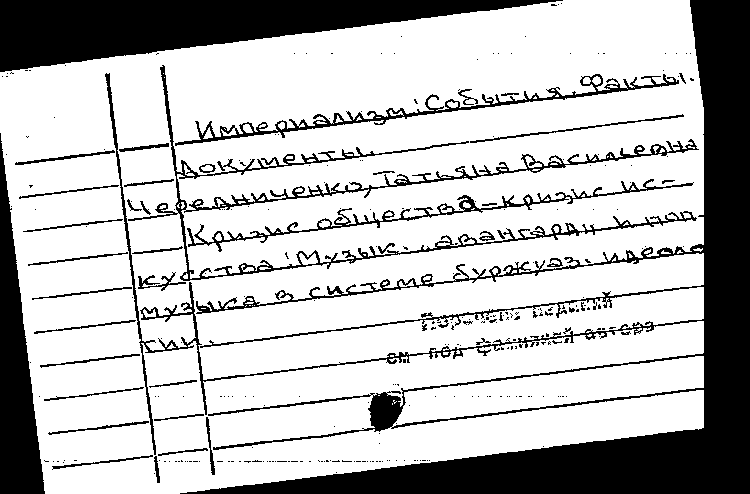 Империализм: События. Факты.
Документы.
Чередниченко, Татьяна Васильевна
Кризис общества – кризис ис-
кусства: Музык. „авангард„ и поп-
музыка в системе буржуаз. идеоло
гии.
Перечень изданий
см под фамилией автора